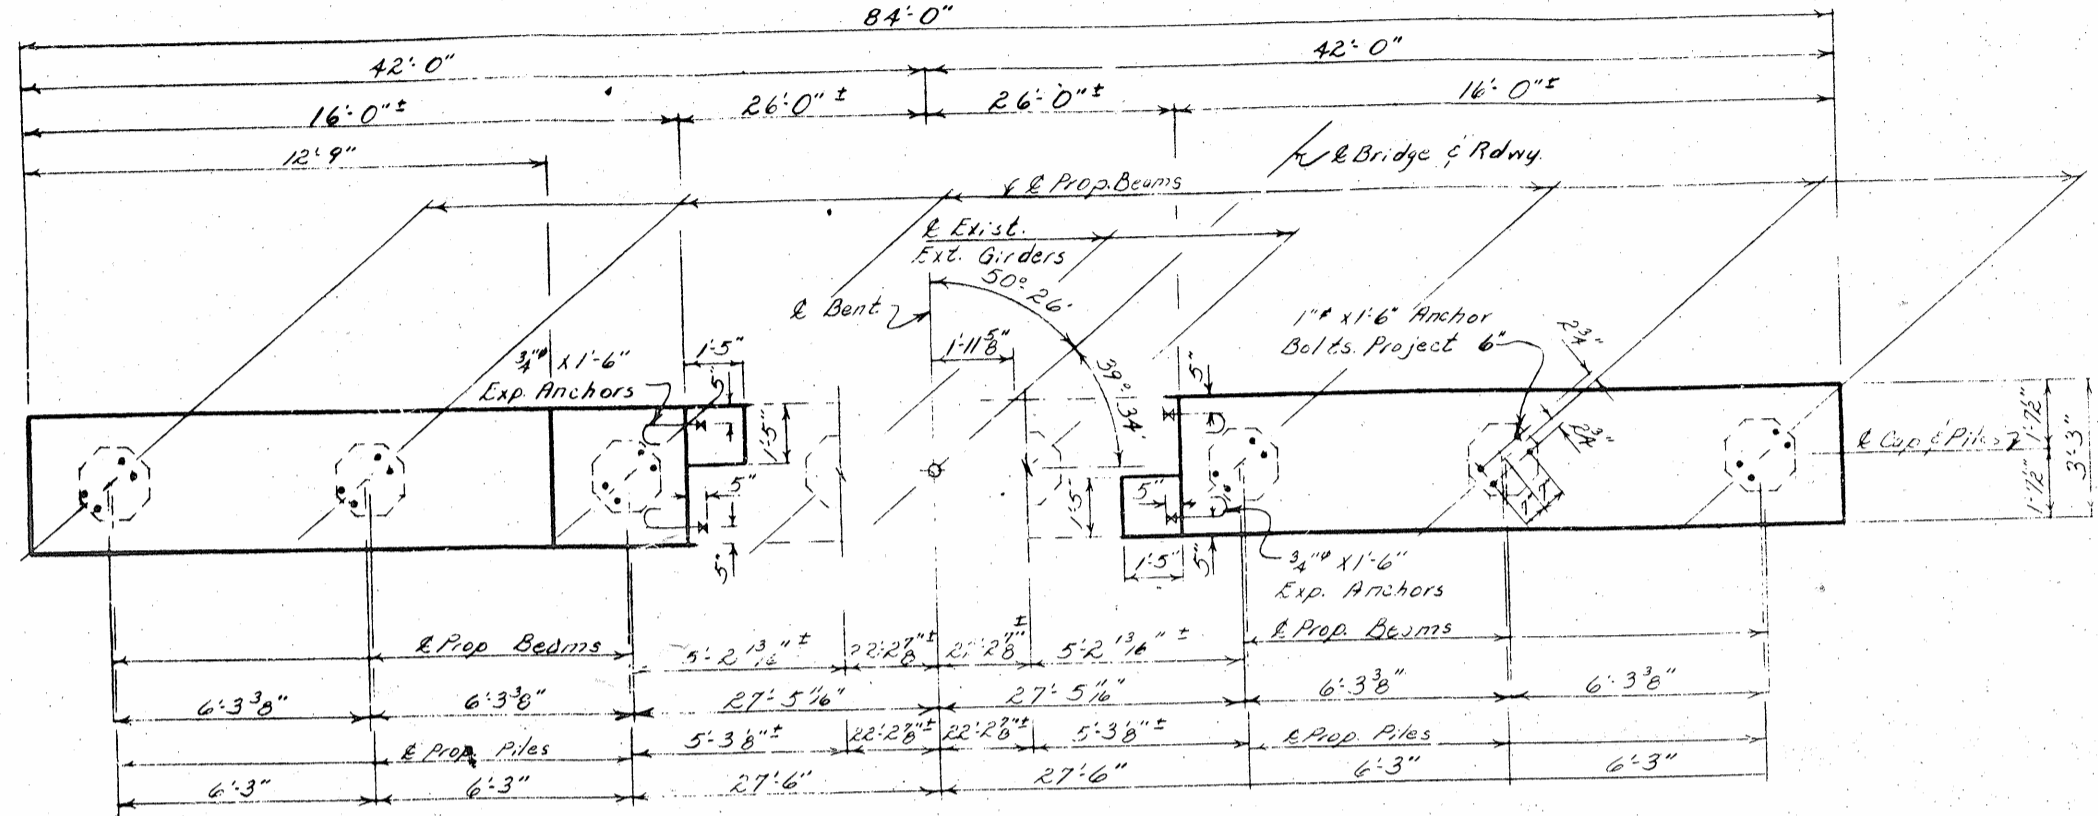 84'-0"
42'-0"
42'-0"
16'-0"±
26'-0"±
26'-0"±
16'-0"±
12'-9"
℄ Bridge & Rdwy.
℄ Prop. Beams
℄ Exist.
Ext. Girders
50°-26'
℄ Bent
1'-11 5/8"
39°-34'
3/4"ø x 1'-6"
Exp. Anchors
1'-5"
5"
1'-5"
5"
5"
1"ø x 1'-6" Anchor
Bolts. Project 6"
2 3/4"
2 3/4"
7"
7"
5"
5"
1'-5"
1'-5"
5"
3/4"ø x 1'-6"
Exp. Anchors
℄ Cap & Piles
1'-7 1/2"
1'-7 1/2"
3'-3"
℄ Prop Beams
5'-2 13/16"±
22'-2 7/8"±
2 7/8"±
5'-2 13/16"±
℄ Prop. Beams
6'-3 3/8"
6'-3 3/8"
27'-5 11/16"
27'-5 11/16"
6'-3 3/8"
6'-3 3/8"
℄ Prop. Piles
5'-3 1/8"±
22'-2 7/8"±
22'-2 7/8"±
5'-3 1/8"±
℄ Prop. Piles
6'-3"
6'-3"
27'-6"
27'-6"
6'-3"
6'-3"